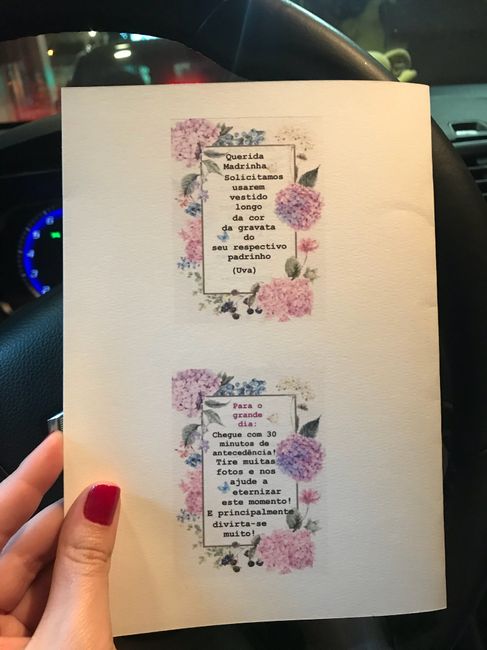 Querida
Madrinha
Solicitamos
usarem
vestido
longo
da cor
da gravata
do
seu respectivo
padrinho
(Uva)
Para o
grande
dia:
Chegue com 30
minutos de
antecedência!
Tire muitas
fotos e nos
ajude a
eternizar
este momento!
E principalmente
divirta-se
muito!